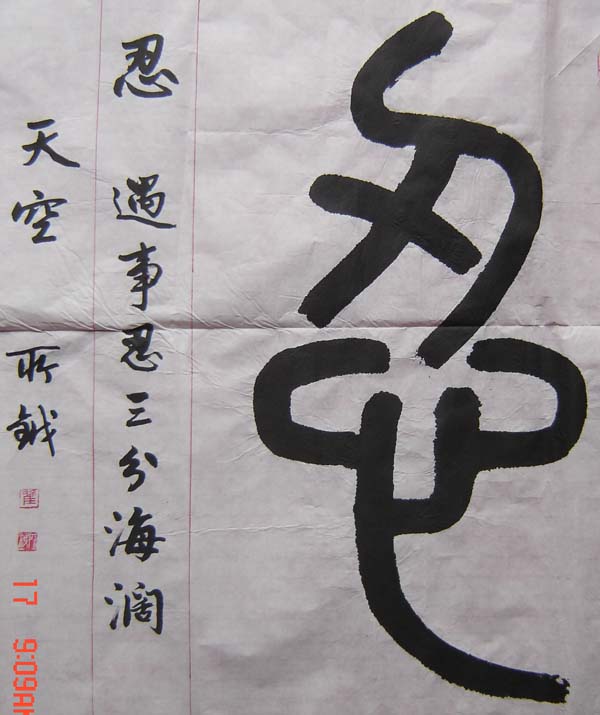 忍
忍 遇事忍三分海阔
天空
17 9:09AM